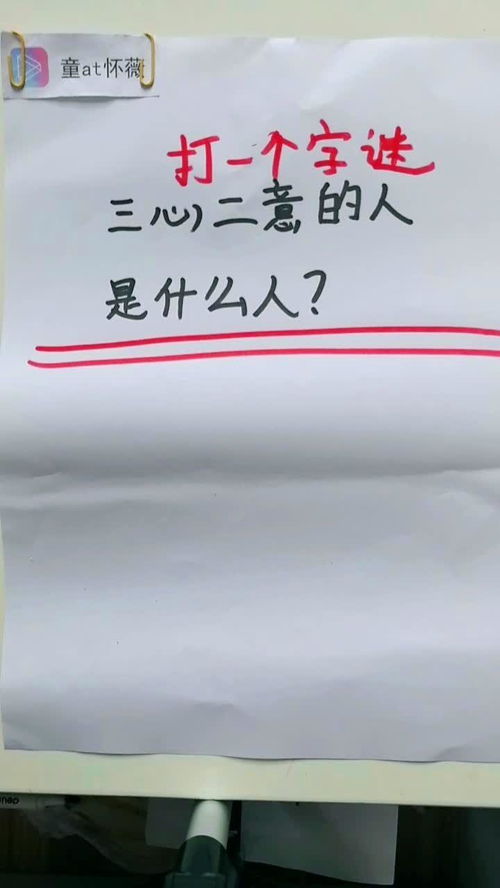 童at怀薇
打一个字谜
三心二意的人
是什么人?